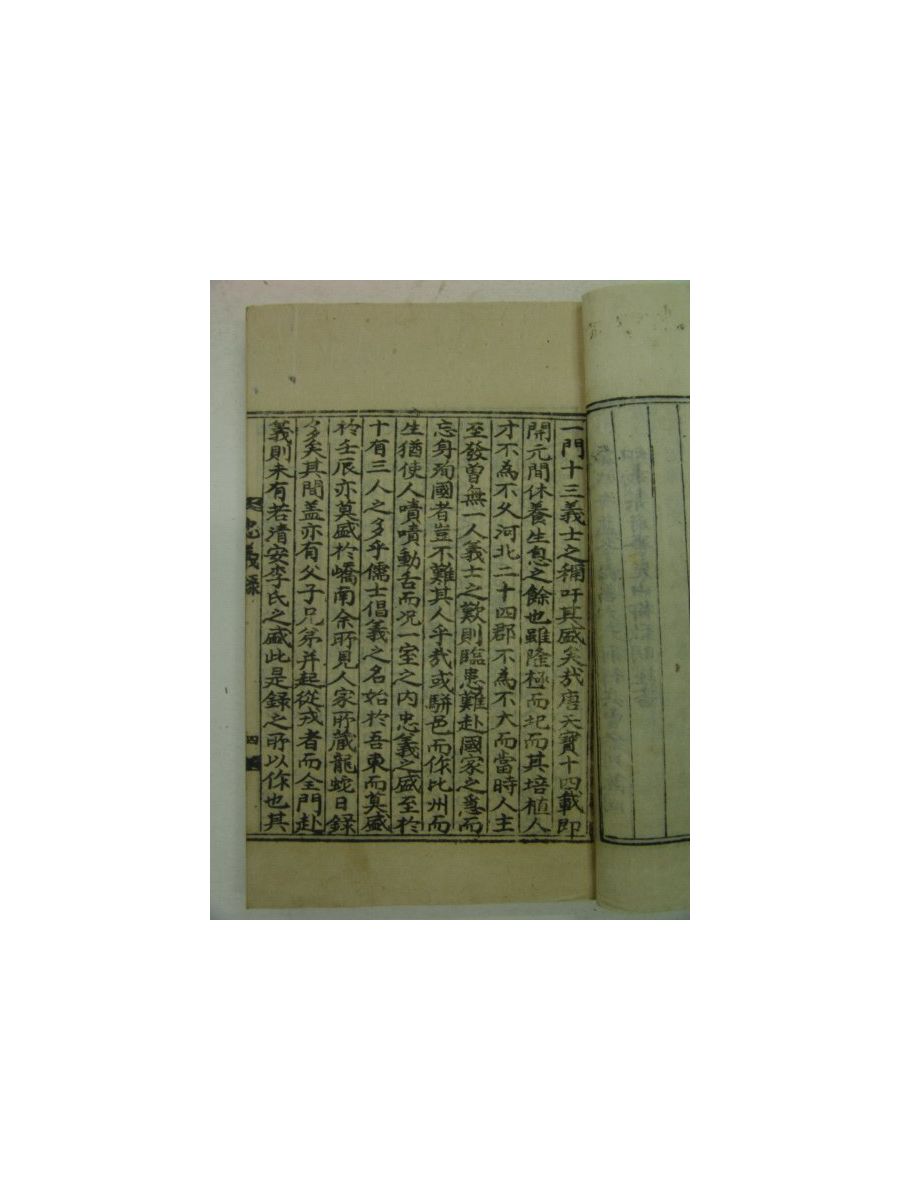 一門十三義士之稱吁其盛矣哉唐天寶十四載即
開元間休養生息之餘也雖隆極而圮而其培植人
才不為不久河北二十四郡不為不大而當時人主
至發曾無一人義士之歎則臨患難赴國家之急而
忘身殉國者豈不難其人乎哉或騈邑而作比州而
生猶使人嘖嘖動舌而况一室之内忠義之盛至於
十有三人之多乎儒士倡義之名始於吾東而莫盛
於壬辰亦莫盛於嶠南余所見人家所藏龍蛇日錄
多矣其間盖亦有父子兄弟并起從戎者而全門赴
義則未有若清安李氏之盛此是錄之所以作也其
忠義錄
四